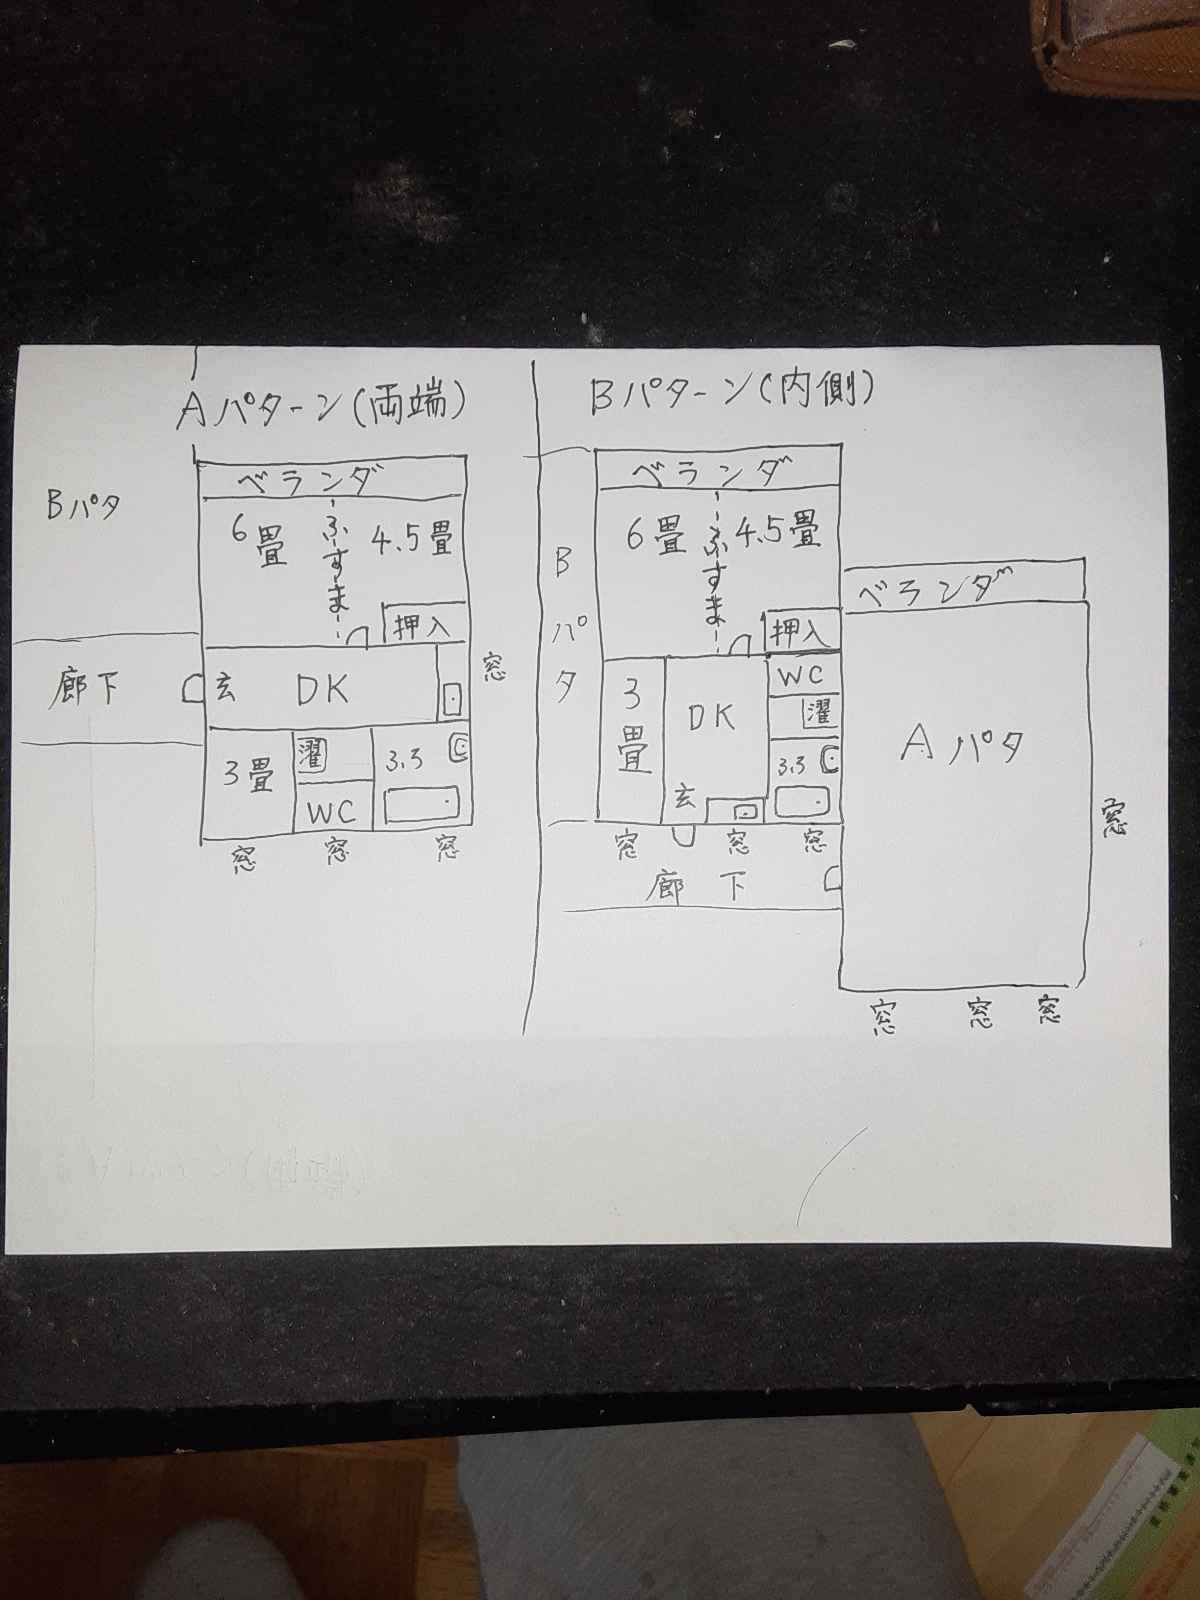 Aパターン(両端)
Bパタ
ベランダ
6畳
ふすま
4.5畳
押入
廊下
玄
DK
窓
3畳
濯
WC
3.3
窓
窓
窓
Bパターン(内側)
Bパタ
ベランダ
6畳
ふすま
4.5畳
押入
3畳
DK
WC
濯
3.3
玄
窓
窓
窓
廊下
ベランダ
Aパタ
窓
窓
窓
窓